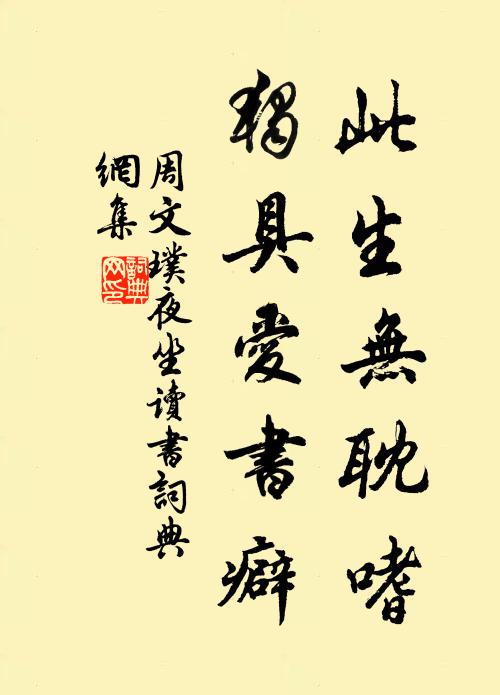 此生無耽嗜
獨具愛書癖
周文璞夜坐讀書詞典
網集
詞典
网印